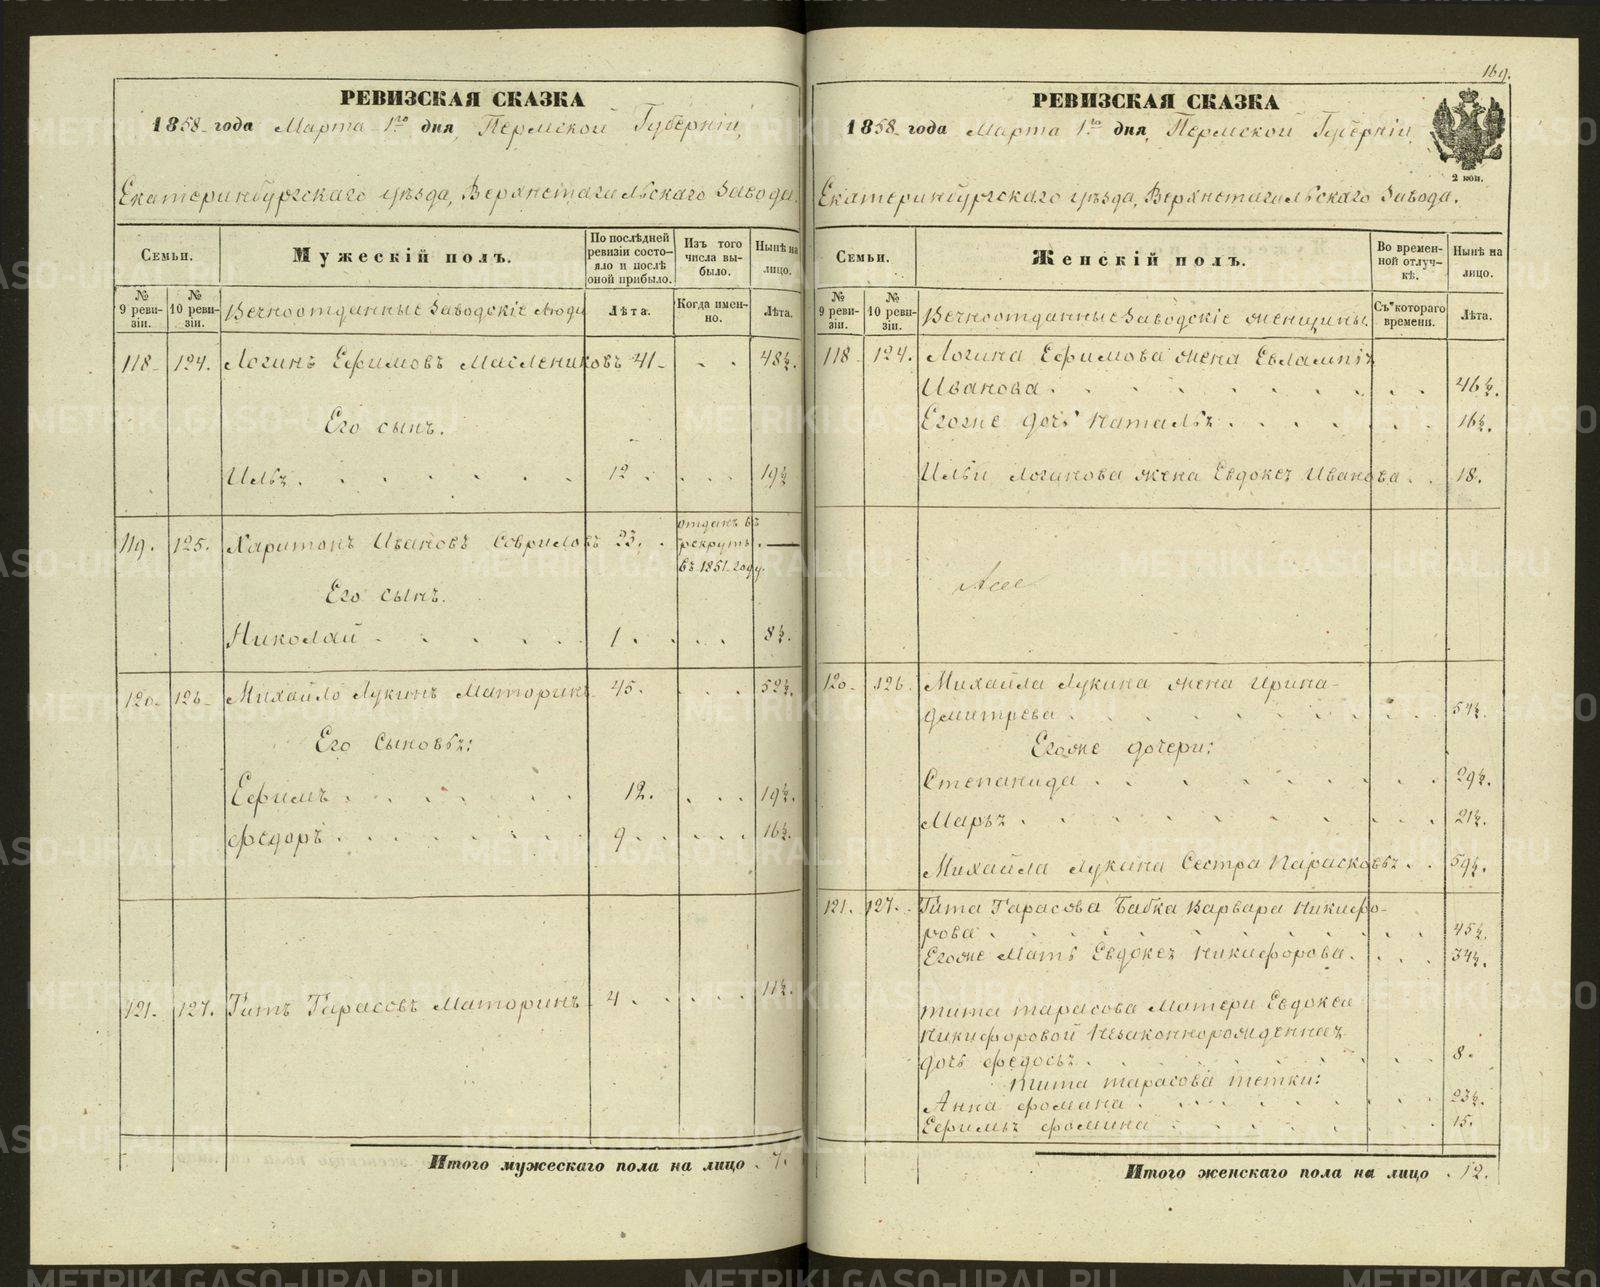 169.
РЕВИЗСКАЯ СКАЗКА
1858 года Марта 1го дня, Пермской Губерніи,
Екатеринбургскаго уѣзда, Верхнетагильскаго Завода.
Семьи.
Мужескій полъ.
По послѣдней ревизіи состояло и послѣ оной прибыло.
Изъ того числа выбыло.
Нынѣ на лицо.
№ 9 ревизіи.
№ 10 ревизіи.
Вечноотданные Заводскіе Люди
Лѣта.
Когда именно.
Лѣта.
118 124. Логинъ Ефимовъ Маслениковъ 41 48½.
Его сынъ.
Илья. 12 19½
119. 125. Харитонъ Ивановъ 23. отданъ въ рекруты въ 1851 году. —
Его сынъ.
Николай 1. 8½.
120. 126 Михайло Лукинъ Маторинъ 45. 52½.
Его Сыновья:
Ефимъ 12. 19½.
Федоръ 9. 16½.
121. 127. Титъ Тарасовъ Маторинъ 4 11½.
Итого мужескаго пола на лицо 7.
РЕВИЗСКАЯ СКАЗКА
1858 года Марта 1го дня, Пермской Губерніи,
2 коп.
Екатеринбургскаго уѣзда, Верхнетагильскаго Завода.
Семьи.
Женскій полъ.
Во временной отлучкѣ.
Нынѣ на лицо.
№ 9 ревизіи.
№ 10 ревизіи.
Вечноотданные Заводскіе женщины.
Съ котораго времени.
Лѣта.
118 124. Логина Ефимова жена Евлампія
Иванова 46½.
Егоже дочь Наталья 16½.
Ильи Логинова жена Евдокея Иванова 18.
120 126 Михайла Лукина жена Ирина
Дмитрева 54½.
Егоже дочери:
Степанида 29½.
Марья 21½.
Михайла Лукина Сестра Парасковья 59½.
121. 127. Тита Тарасова Бабка Варвара Никифорова 45½.
Егоже Мать Евдокея Никифорова 34½.
Тита тарасова Матери Евдокеи
Никифоровой Незаконнорожденная
дочь Федосья 8.
Тита тарасова тетки:
Анна Фомина 23½.
Ефимья Фомина 15.
Итого женскаго пола на лицо 12.
METRIKI.GASO-URAL.RU